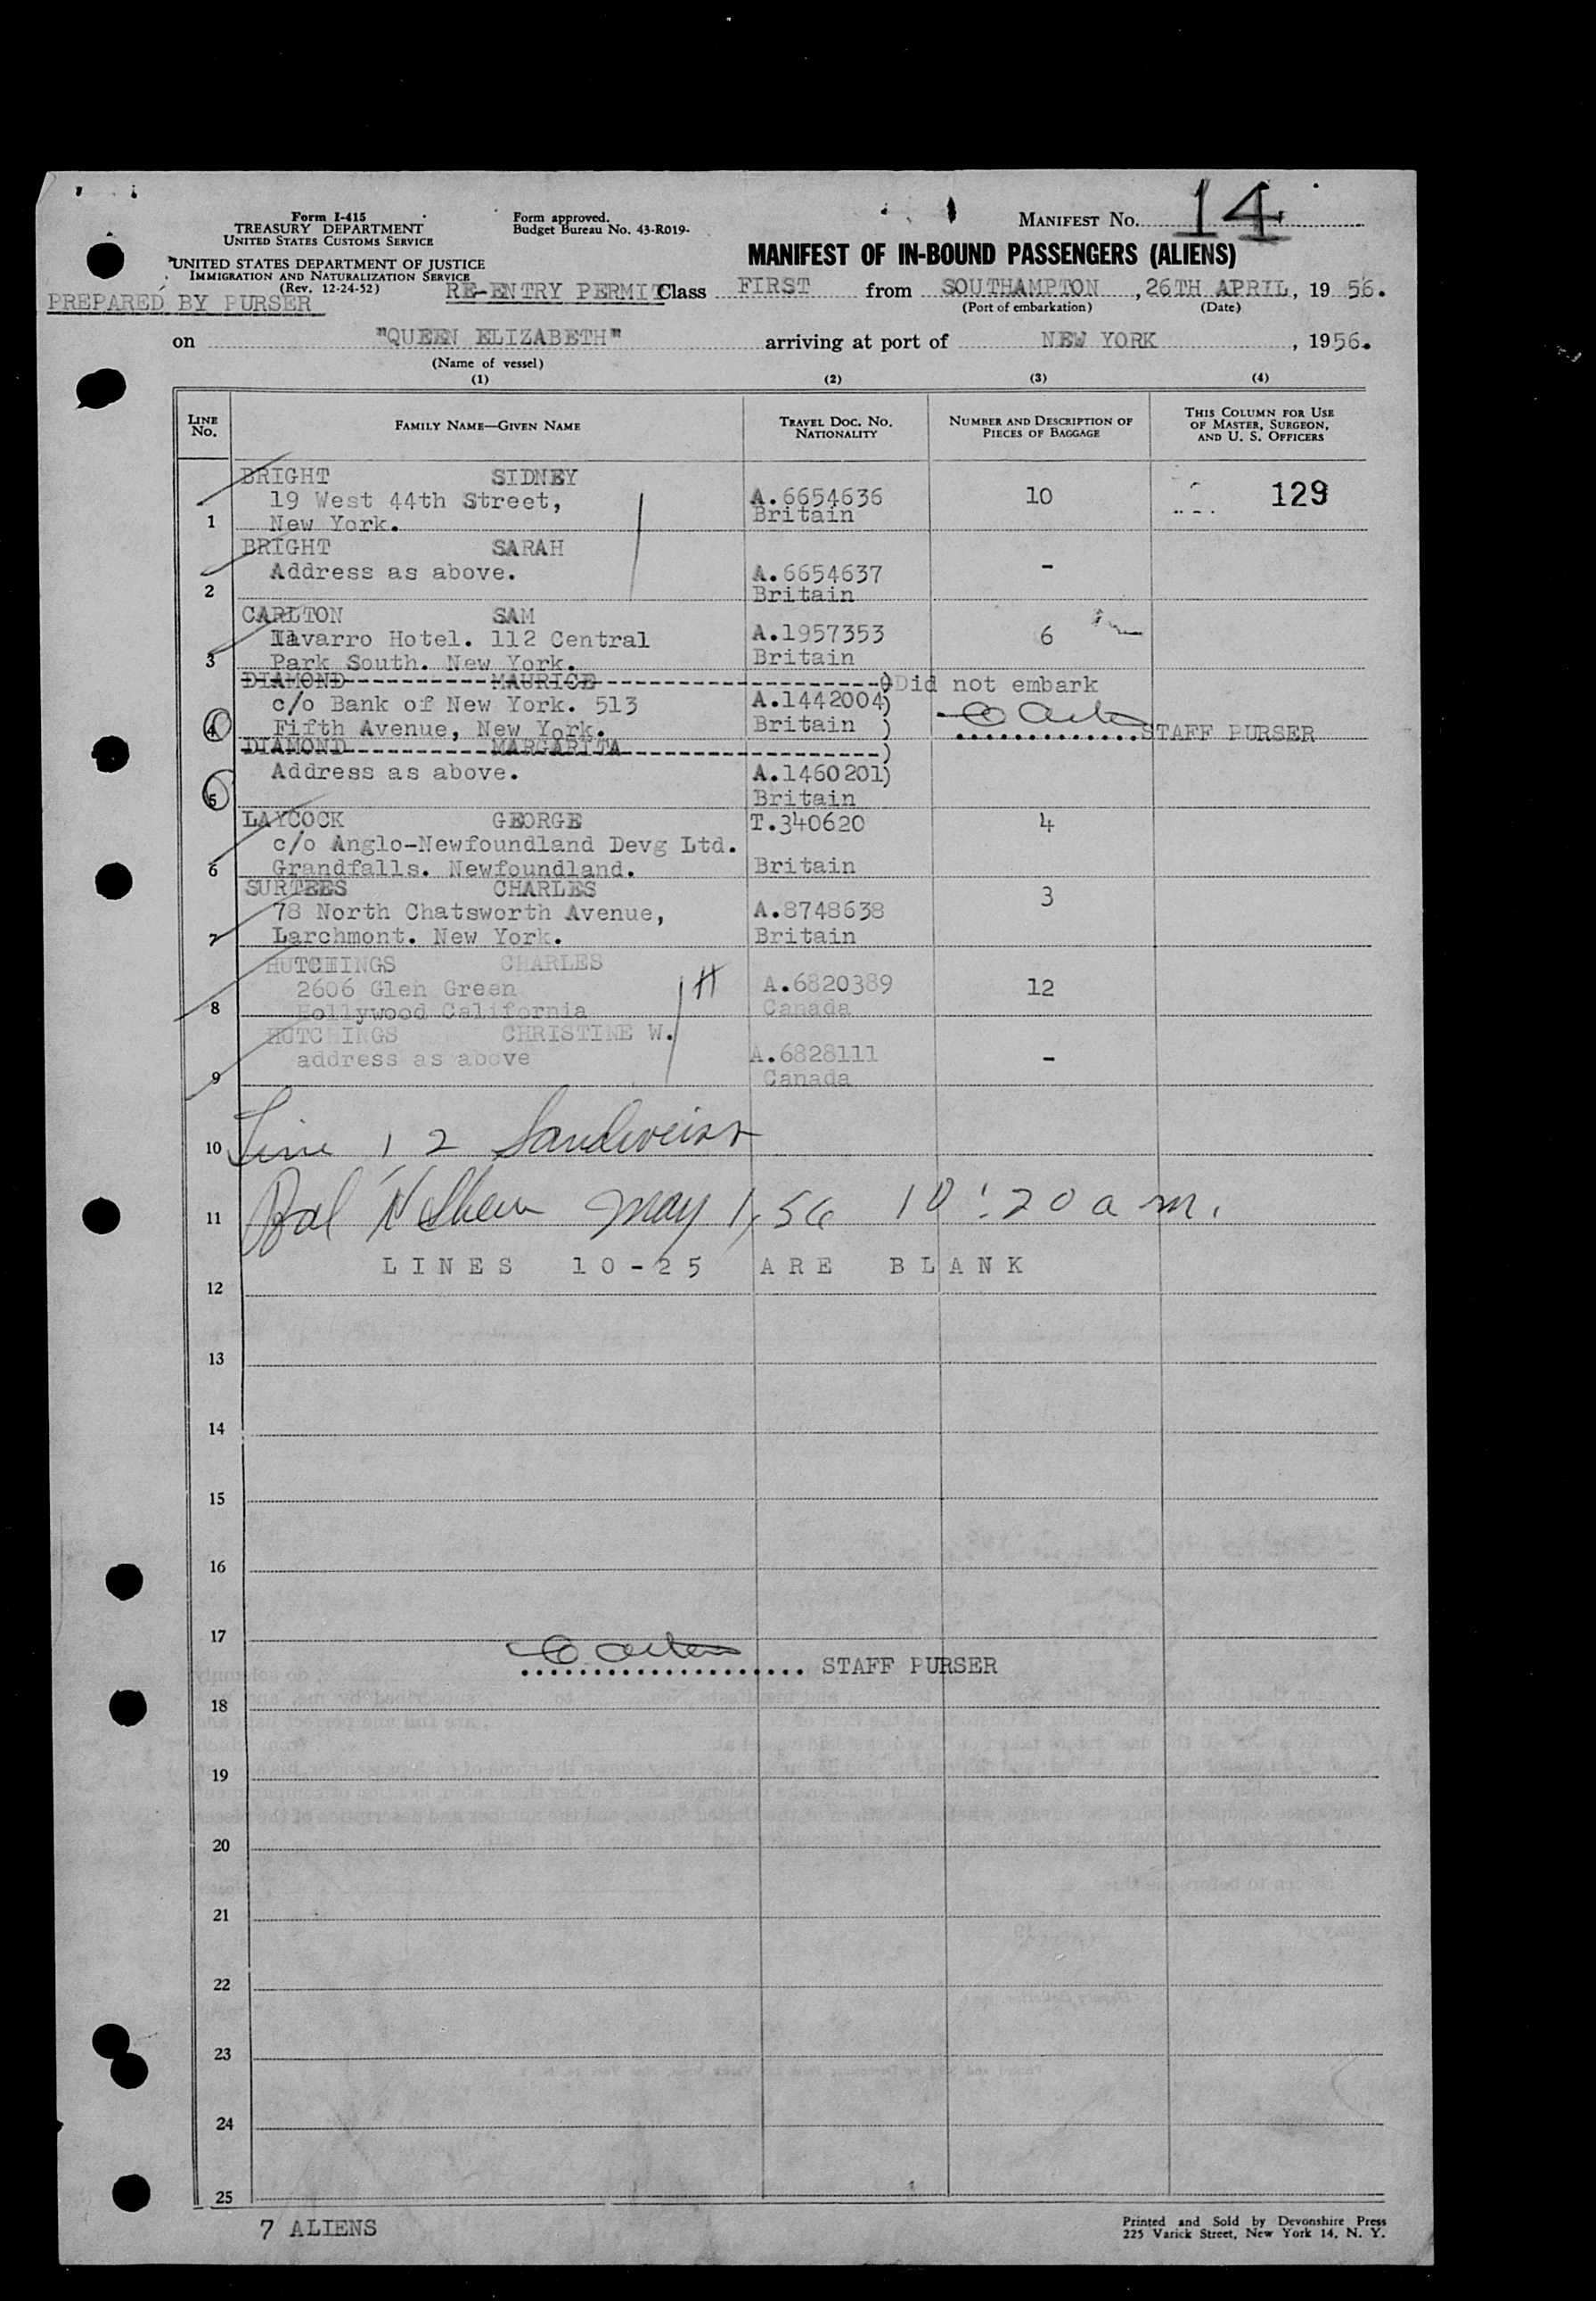 Form I-415
TREASURY DEPARTMENT
UNITED STATES CUSTOMS SERVICE
Form approved.
Budget Bureau No. 43-R019-
MANIFEST NO. 14
UNITED STATES DEPARTMENT OF JUSTICE
IMMIGRATION AND NATURALIZATION SERVICE
(Rev. 12-24-52)
MANIFEST OF IN-BOUND PASSENGERS (ALIENS)
PREPARED BY PURSER
RE-ENTRY PERMIT Class FIRST from SOUTHAMPTON, 26TH APRIL, 19 56.
(Port of embarkation) (Date)
on "QUEEN ELIZABETH" arriving at port of NEW YORK, 1956.
(Name of vessel)
(1) (2) (3) (4)
LINE No. FAMILY NAME—GIVEN NAME TRAVEL DOC. NO. NATIONALITY NUMBER AND DESCRIPTION OF PIECES OF BAGGAGE THIS COLUMN FOR USE OF MASTER, SURGEON, AND U. S. OFFICERS
BRIGHT SIDNEY
19 West 44th Street, A.6654636 10 129
1 New York. Britain
BRIGHT SARAH
Address as above. A.6654637 -
2 Britain
CARLTON SAM
Navarro Hotel. 112 Central A.1957353 6
3 Park South. New York. Britain
DIAMOND MAURICE ) Did not embark
c/o Bank of New York. 513 A.1442004)
4 Fifth Avenue, New York. Britain ) STAFF PURSER
DIAMOND MARGARITA )
Address as above. A.1460201)
5 Britain
LAYCOCK GEORGE T.340620 4
c/o Anglo-Newfoundland Devg Ltd.
6 Grandfalls. Newfoundland. Britain
SURTEES CHARLES 3
78 North Chatsworth Avenue, A.8748638
7 Larchmont. New York. Britain
HUTCHINGS CHARLES H
2606 Glen Green A.6820389 12
8 Hollywood California Canada
HUTCHINGS CHRISTINE W.
address as above A.6828111 -
9 Canada
10 Line 1 2 Sandweiss
11 Bal May 1, 56 10:20 am.
LINES 10-25 ARE BLANK
12
13
14
15
16
17
STAFF PURSER
18
19
20
21
22
23
24
25
7 ALIENS
Printed and Sold by Devonshire Press
225 Varick Street, New York 14, N. Y.